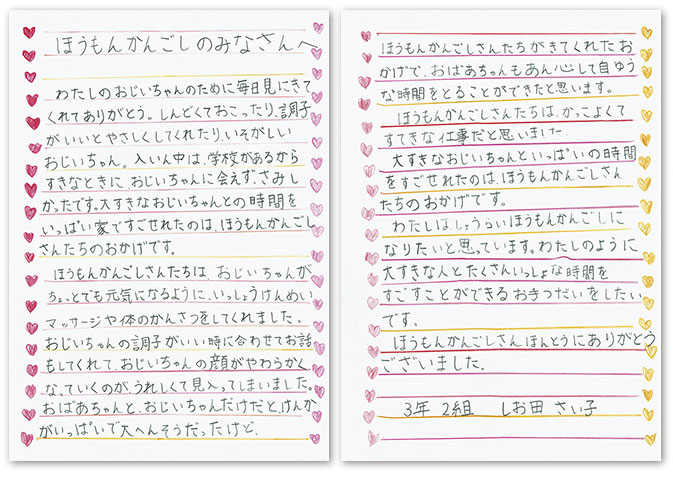 ほうもんかんごしのみなさんへ
わたしのおじいちゃんのために毎日見にきて
くれてありがとう。しんどくておこったり、調子
がいいとやさしくしてくれたり、いそがしい
おじいちゃん。入いん中は、学校があるから
すきなときに、おじいちゃんに会えず、さみし
かったです。大すきなおじいちゃんとの時間を
いっぱい家ですごせれたのは、ほうもんかんごし
さんたちのおかげです。
ほうもんかんごしさんたちは、おじいちゃんが
ちょっとでも元気になるように、いっしょうけんめい
マッサージや体のかんさつをしてくれました。
おじいちゃんの調子がいい時に合わせてお話
もしてくれて、おじいちゃんの顔がやわらかく
なっていくのが、うれしくて見入ってしまいました。
おばあちゃんと、おじいちゃんだけだと、けんか
がいっぱいで大へんそうだったけど、
ほうもんかんごしさんたちがきてくれたお
かげで、おばあちゃんもあん心して自ゆう
な時間をとることができたと思います。
ほうもんかんごしさんたちは、かっこよくて
すてきな仕事だと思いました。
大すきなおじいちゃんといっぱいの時間
をすごせれたのは、ほうもんかんごしさん
たちのおかげです。
わたしは、しょうらいほうもんかんごしに
なりたいと思っています。わたしのように
大すきな人とたくさんいっしょな時間を
すごすことができるお手つだいをしたい
です。
ほうもんかんごしさんほんとうにありがとう
ございました。
3年 2組 しお田 さい子